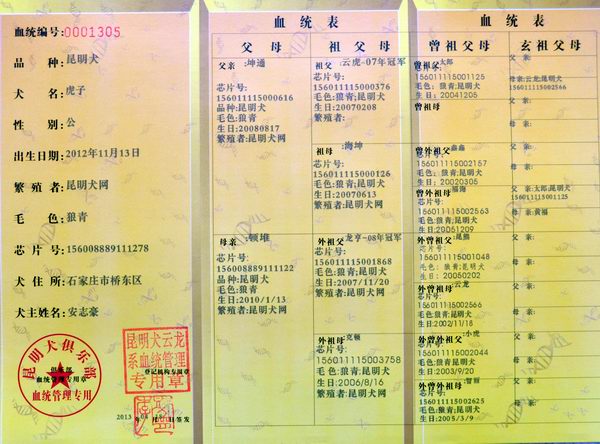 血统编号:0001305
品 种:昆明犬
犬 名:虎子
性 别:公
出生日期:2012年11月13日
繁殖者:昆明犬网
毛 色:狼青
芯片号:156008889111278
犬住所:石家庄市桥东区
犬主姓名:安志豪
昆明犬俱乐部
俱乐部
血统管理专用章
血统管理专用
昆明犬云龙
系血统管理
专用章
登记机构专用章
血统表
父母
祖父母
父亲:坤通
芯片号:
156011115000616
品种:昆明犬
毛色:狼青
生日:20080817
繁殖者:昆明犬网
母亲:顿堆
芯片号:
156008889111122
品种:昆明犬
毛色:狼青
生日:2010/1/13
繁殖者:昆明犬网
祖父:云虎-07年冠军
芯片号:
156011115000376
毛色:狼青;昆明犬
生日:20070208
繁殖者:
祖母:海坤
芯片号:
156011115000126
毛色:狼青;昆明犬
生日:20070613
繁殖者:昆明犬网
外祖父:龙亨-08年冠军
芯片号:
156011115001868
毛色:狼青;昆明犬
生日:2007/11/20
繁殖者:昆明犬网
外祖母:克顿
芯片号:
156011115003758
毛色:狼青;昆明犬
生日:2006/8/16
繁殖者:昆明犬网
血统表
曾祖父母
玄祖父母
曾祖父:太郎
芯片号:
156011115001125
毛色:狼青;昆明犬
生日:20041205
曾祖母
曾外祖父:鑫鑫
芯片号:
156011115002157
毛色:狼青;昆明犬
生日:20020305
曾外祖母:福海
芯片号:
156011115002563
毛色:狼青;昆明犬
生日:20051209
外曾祖父:昆熊
芯片号:
156011115001048
毛色:狼青;昆明犬
生日:20050202
外曾祖母:云龙
芯片号:
156011115002566
毛色:狼青;昆明犬
生日:2002/11/18
外曾外祖父:小虎
芯片号:
156011115001104
毛色:狼青;昆明犬
生日:2003/9/20
外曾外祖母
芯片号:
156011112002625
毛色:狼青;昆明犬
生日:2005/3/9
父亲:
母亲:云龙;昆明犬
156011115002566
父亲:
母亲:
父亲:
母亲:
父亲:太郎,昆明犬
156011115001125
母亲:黄福
父亲:
母亲:
父亲:
母亲:
父亲:
母亲:
父亲:
母亲: